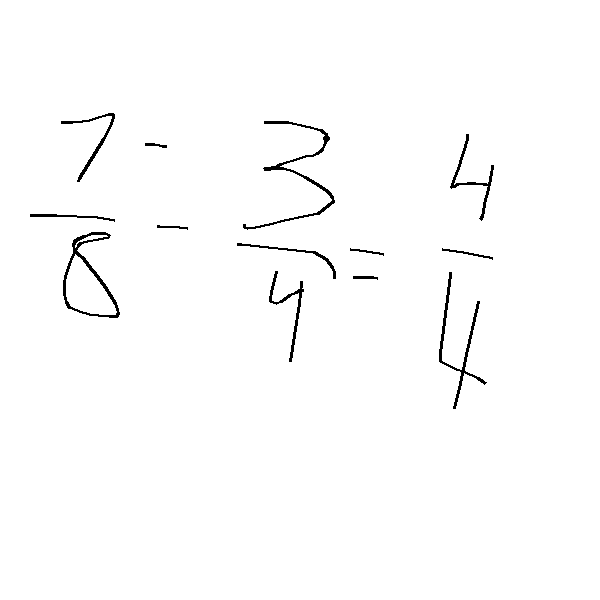 7/8 - 3/4 = 4/4